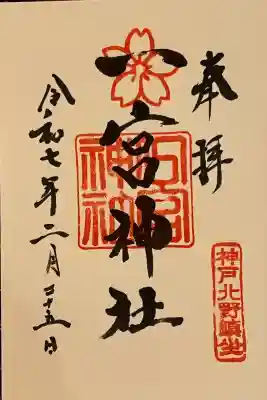 奉拝
神戸北野鎮坐
一宮神社
令和七年二月二十五日